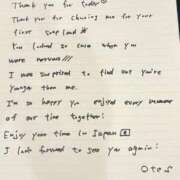 Thank you for today
Thank you for chusing me for your
first soapland
You looked so cute when you
were nervous!!!
I was surprised to find out you're
younger than me.
I'm so happy you enjoyed every
of our time together!
Enjoy your time in Japan
I look forward to see you again!